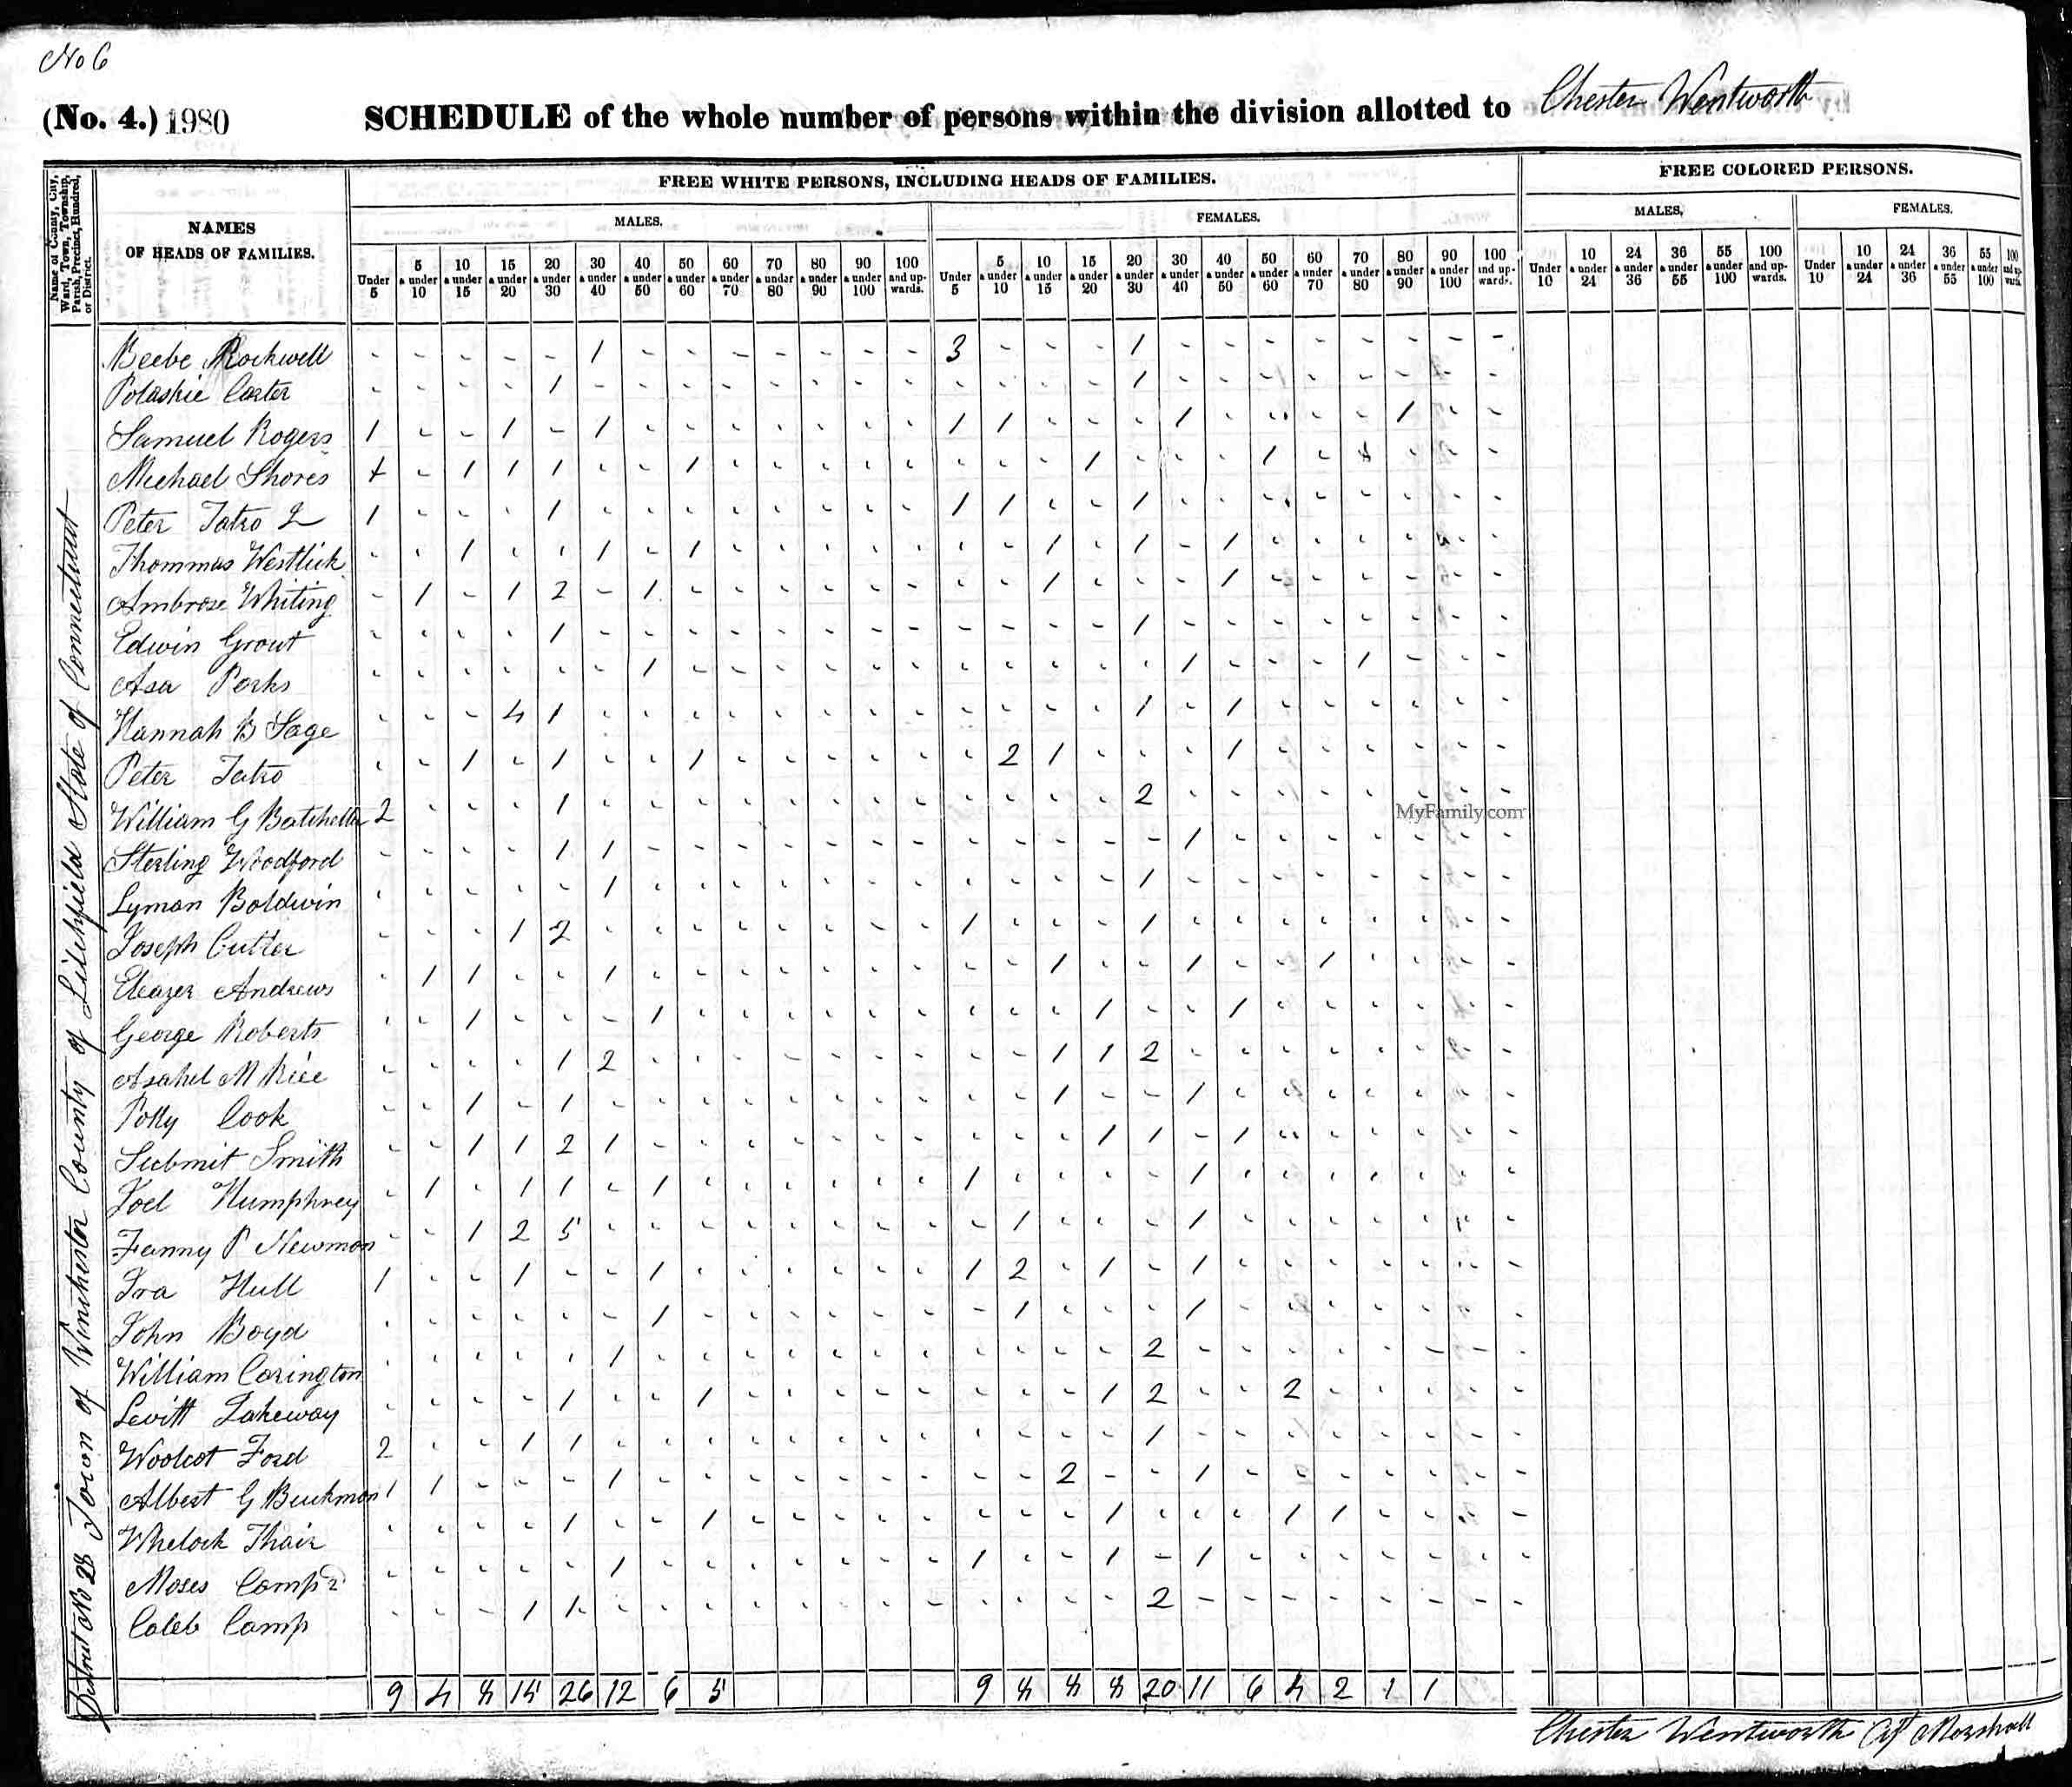 No 6
(No. 4.) 1980 SCHEDULE of the whole number of persons within the division allotted to Chester Wentworth
Name of County, City, Ward, Town, Township, Parish, Precinct, Hundred, or District.
NAMES OF HEADS OF FAMILIES.
FREE WHITE PERSONS, INCLUDING HEADS OF FAMILIES.
FREE COLORED PERSONS.
MALES. FEMALES. MALES. FEMALES.
Under 5 | 5 & under 10 | 10 & under 15 | 15 & under 20 | 20 & under 30 | 30 & under 40 | 40 & under 50 | 50 & under 60 | 60 & under 70 | 70 & under 80 | 80 & under 90 | 90 & under 100 | 100 and up-wards.
Under 5 | 5 & under 10 | 10 & under 15 | 15 & under 20 | 20 & under 30 | 30 & under 40 | 40 & under 50 | 50 & under 60 | 60 & under 70 | 70 & under 80 | 80 & under 90 | 90 & under 100 | 100 and up-wards.
Under 10 | 10 & under 24 | 24 & under 36 | 36 & under 55 | 55 & under 100 | 100 and up-wards.
Under 10 | 10 & under 24 | 24 & under 36 | 36 & under 55 | 55 & under 100 | 100 and up-wards.
District No 28 Town of Winchester County of Litchfield State of Connecticut
Beebe Rockwell - - - - - 1 - - - - - - - 3 - - - 1 - - - - - - - -
Polaskie Carter - - - - 1 - - - - - - - - - - - - 1 - - - - - - - -
Samuel Rogers 1 - - 1 - 1 - - - - - - - 1 1 - - - 1 - - - - 1 - -
Michael Shores - 1 1 1 - - 1 - - - - - - - - 1 - - - 1 - - - - -
Peter Tatro 2 1 - - - 1 - - - - - - - - 1 1 - - 1 - - - - - - - -
Thommas Westlick - - 1 - - 1 - 1 - - - - - - - 1 - 1 - 1 - - - - - -
Ambrose Whiting - 1 - 1 2 - 1 - - - - - - - - 1 - - - 1 - - - - - -
Edwin Grout - - - - 1 - - - - - - - - - - - - 1 - - - - - - - -
Asa Parks - - - - - - 1 - - - - - - - - - - - 1 - - - 1 - - -
Hannah B Sage - - - 4 1 - - - - - - - - - - - - 1 - 1 - - - - - -
Peter Tatro - - 1 - 1 - - 1 - - - - - - 2 1 - - - 1 - - - - - -
William G Batcheller 2 - - - 1 - - - - - - - - - - - - 2 - - - - - - - -
MyFamily.com
Sterling Woodford - - - - 1 1 - - - - - - - - - - - - 1 - - - - - - -
Lyman Baldwin - - - - - 1 - - - - - - - - - - - 1 - - - - - - - -
Joseph Cutler - - - 1 2 - - - - - - - - 1 - - - 1 - - - - - - - -
Eleazer Andrews - 1 1 - - 1 - - - - - - - - - 1 - - 1 - - 1 - - - -
George Roberts - - 1 - - - 1 - - - - - - - - - 1 - - 1 - - - - - -
Asahel M Rice - - - - 1 2 - - - - - - - - - 1 1 2 - - - - - - - -
Polly Cook - - 1 - 1 - - - - - - - - - - 1 - - 1 - - - - - - -
Submit Smith - - 1 1 2 1 - - - - - - - - - - 1 1 - 1 - - - - - -
Joel Humphrey - 1 - 1 1 - 1 - - - - - - 1 - - - - 1 - - - - - - -
Fanny P Newman - - 1 2 5 - - - - - - - - - 1 - - - 1 - - - - - - -
Ira Hull 1 - - 1 - - 1 - - - - - - 1 2 - 1 - 1 - - - - - - -
John Boyd - - - - - - 1 - - - - - - - 1 - - - 1 - - - - - - -
William Carington - - - - - 1 - - - - - - - - - - - 2 - - - - - - - -
Levitt Lakeway - - - - 1 - - 1 - - - - - - - - 1 2 - - 2 - - - - -
Woolcot Ford 2 - - 1 1 - - - - - - - - - - - - 1 - - - - - - - -
Albert G Buckman 1 1 - - - 1 - - - - - - - - - 2 - - 1 - - - - - - -
Whelock Thair - - - - 1 - - 1 - - - - - - - - 1 - - - 1 1 - - - -
Moses Camp 2 - - - - - 1 - - - - - - - 1 - - 1 - 1 - - - - - - -
Caleb Camp - - - 1 1 - - - - - - - - - - - - 2 - - - - - - - -
9 4 8 15 26 12 6 5 9 8 8 8 20 11 6 4 2 1 1
Chester Wentworth Marshall